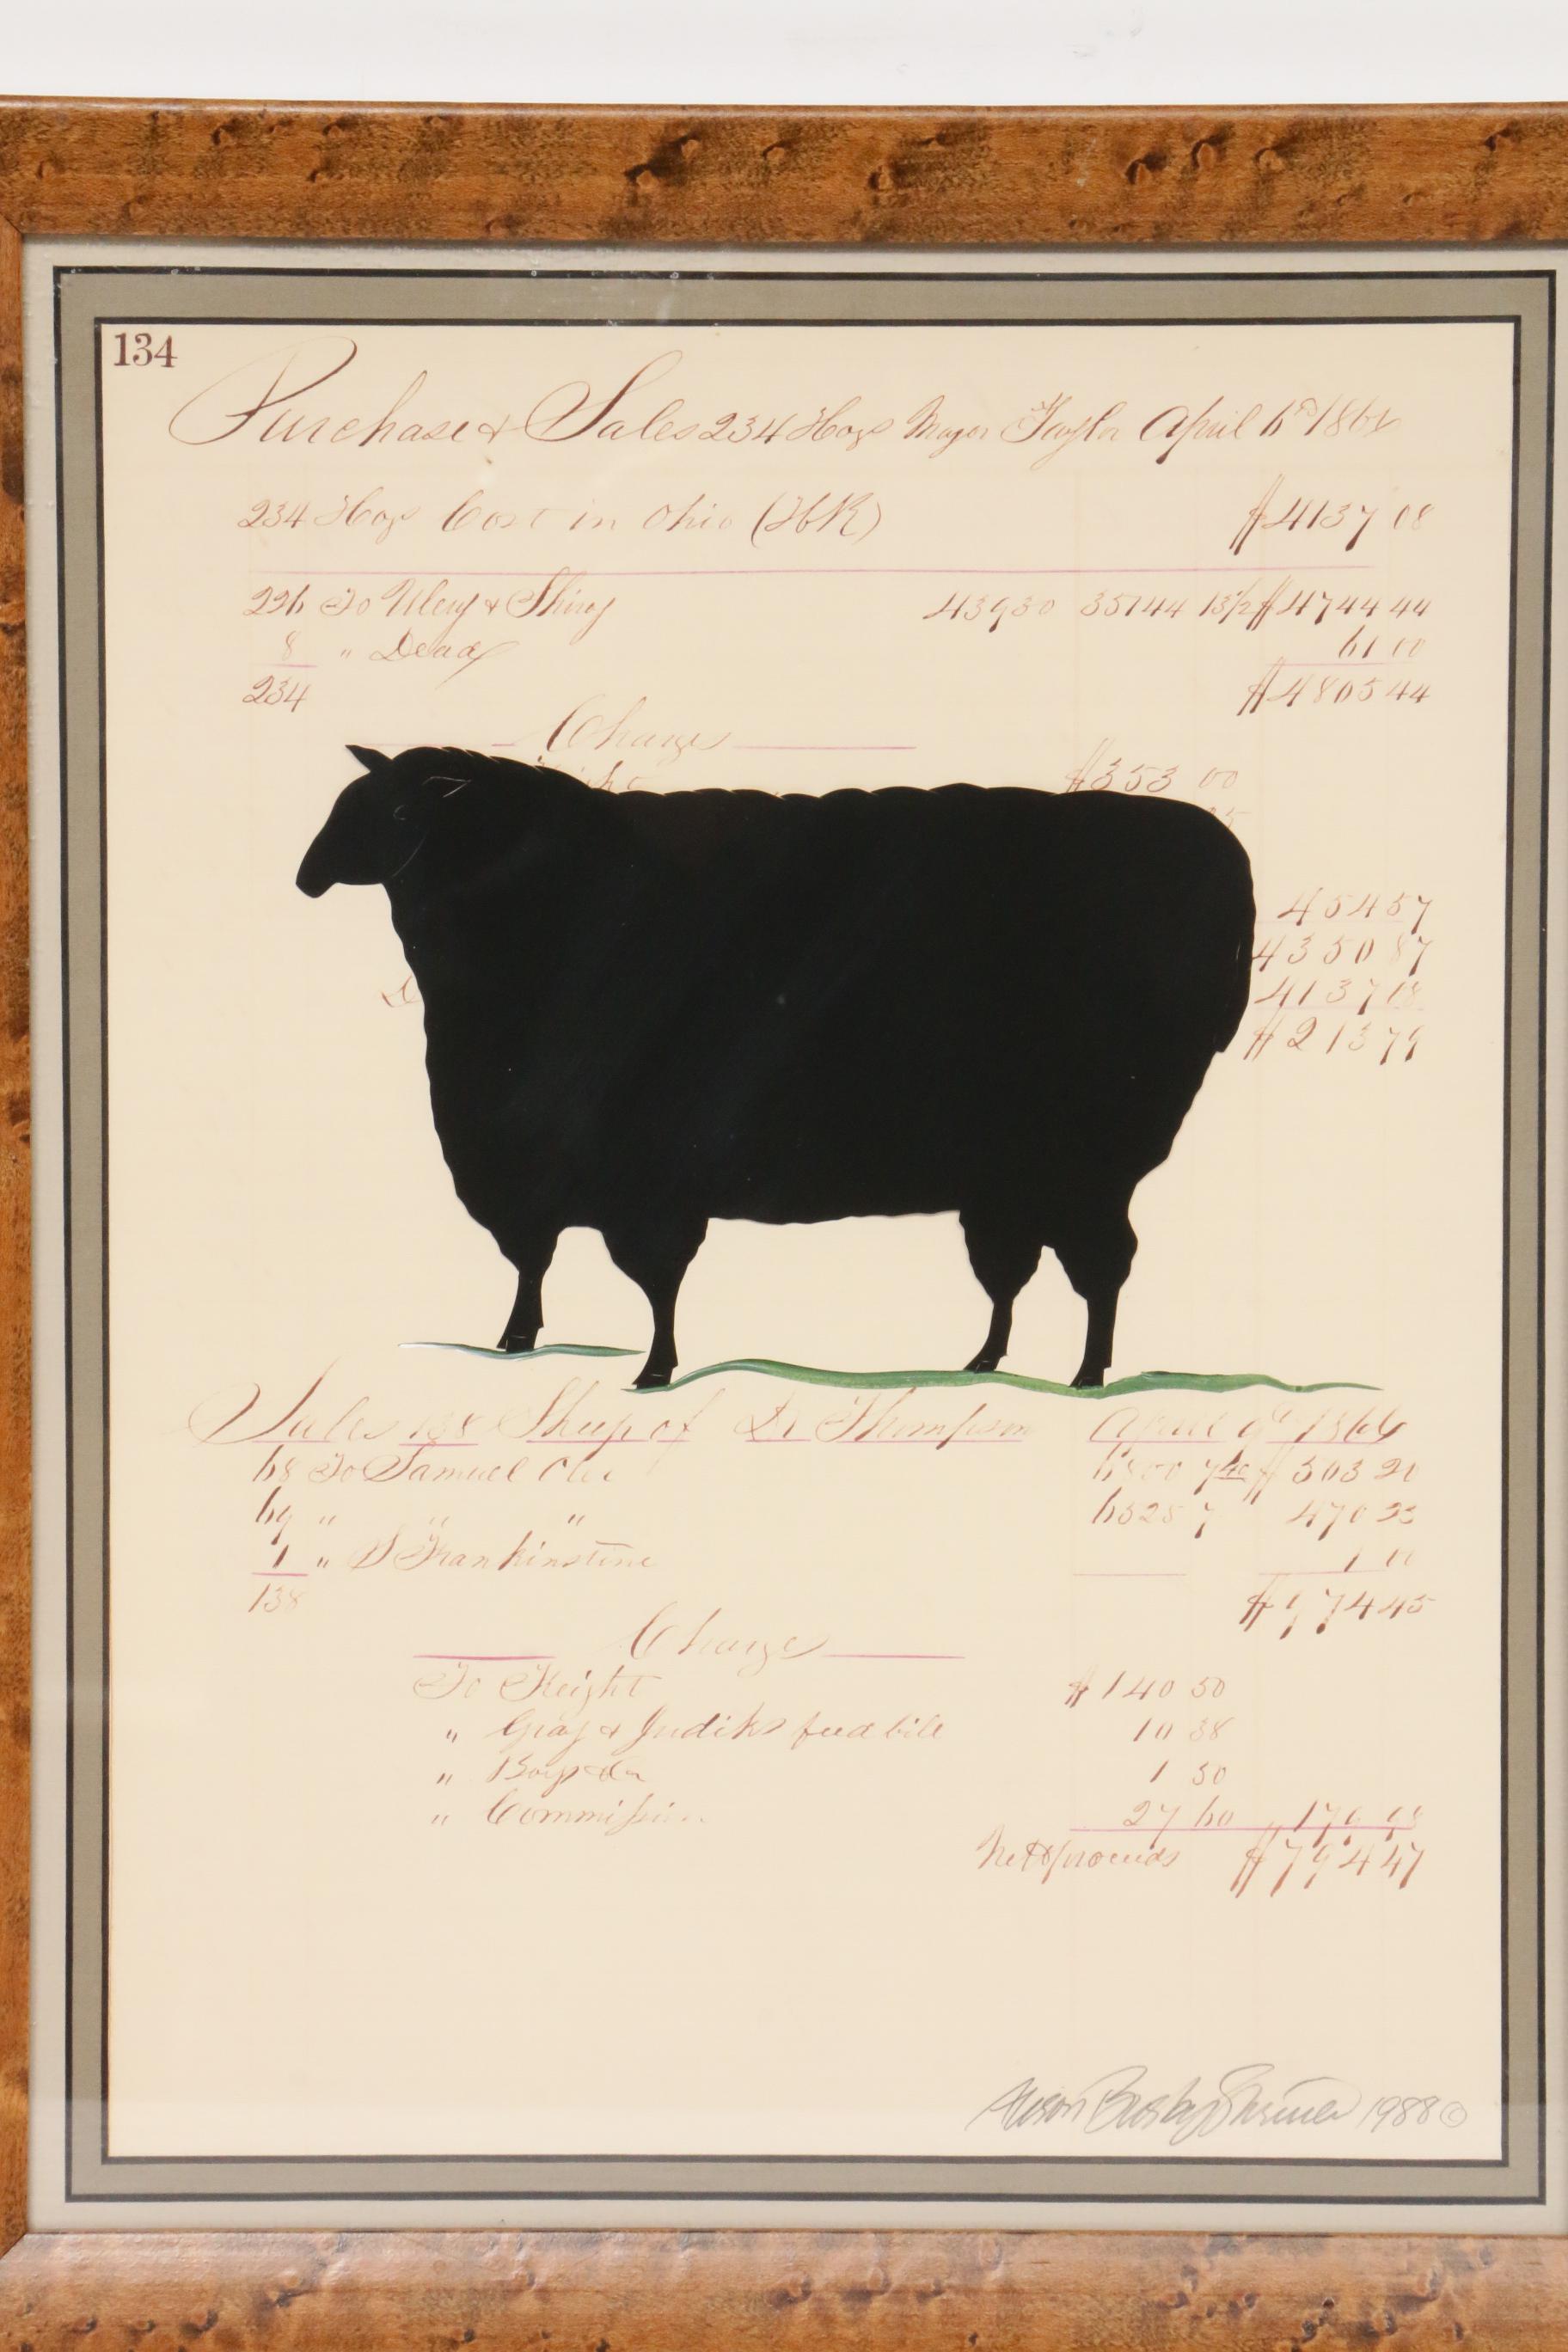 134
Purchase & Sales 234 Hogs Major Taylor April 6th 186
234 Hogs Cost in Ohio (HR) $4137 08
226 To Ulery & Shiny 43930 35144 13½ $4744 44
8 " Dead 61 00
234 $4805 44
Charges
$353 00
454 57
4350 87
4137 08
$213 79
Sales 138 Sheep of Dr Thompson April 9th 1866
68 To Samuel 6800 7 40 $503 20
69 " " " 6525 7 470 25
1 " S Frankinstine 1 00
138 $974 45
Charges
To Freight $140 50
" Gray & Judiks feed bill 10 38
" Boys 1 50
" Commission 27 60 179 98
Nett proceeds $794 47
1988 ©